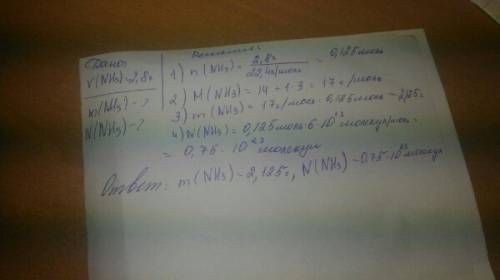 Дано
Решение:
V(NH₃)=2,8л
m(NH₃)-?
N(NH₃)-?
1) n(NH₃) = 2,8л / 22,4л/моль = 0,125моль
2) M(NH₃) = 14 + 1·3 = 17г/моль
3) m(NH₃) = 17г/моль · 0,125моль = 2,125г
4) N(NH₃) = 0,125моль · 6·10²³ молекул/моль
= 0,75 · 10²³ молекул
Ответ: m(NH₃)=2,125г, N(NH₃)=0,75·10²³ молекул